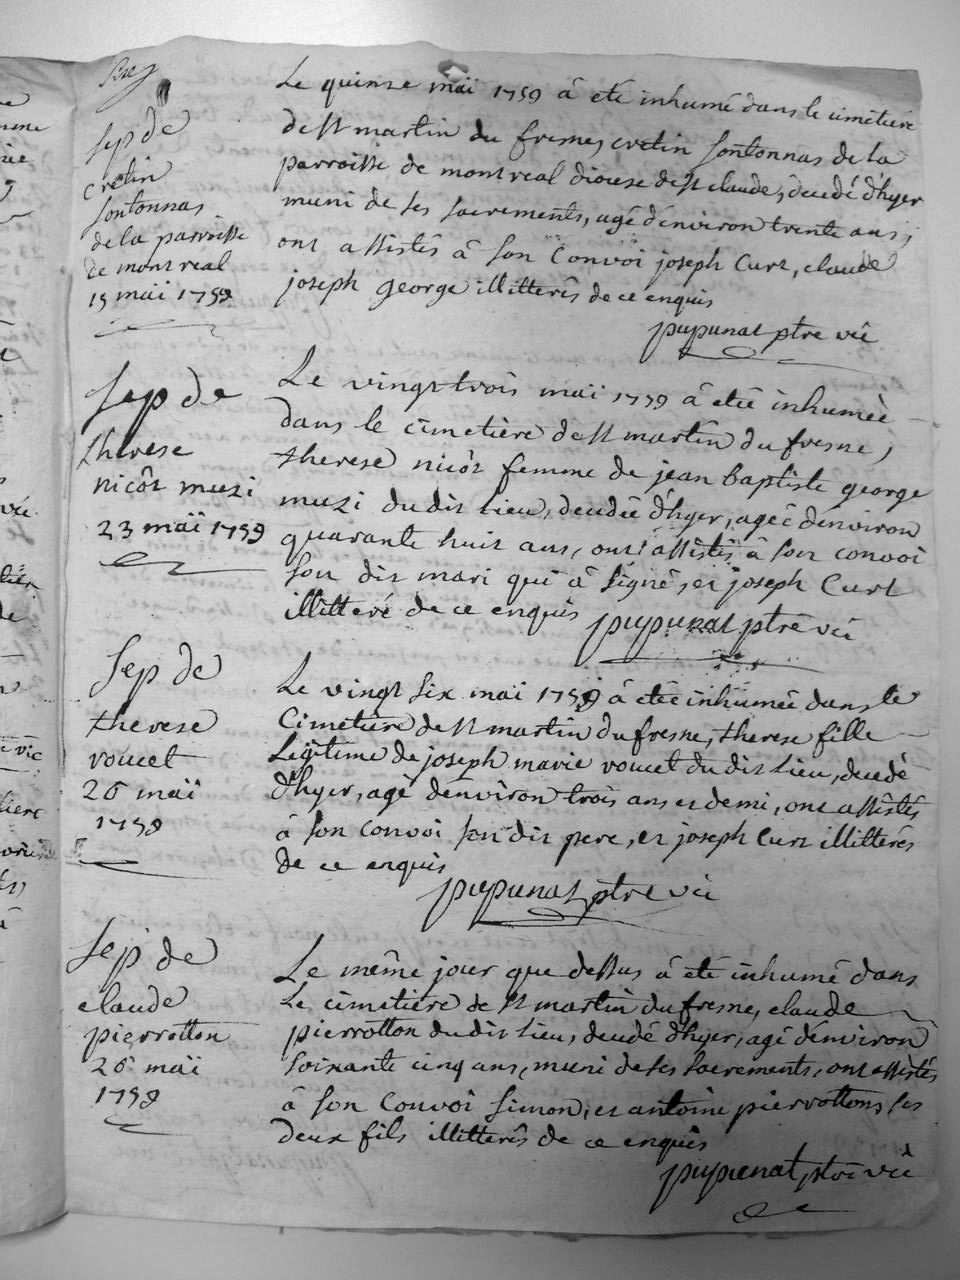 Sep de
cretin
sontonnas
de la parroisse
de montreal
15 maï 1759
Le quinze maï 1759 â eté inhumé dans le cimetiere
de st martin du fresne, cretin sontonnas de la
parroisse de montreal diocese de st claude, decedé d'hyer
muni de ses sacrements, agé d'environ trente ans,
ont assistés â son convoi joseph Curt, claude
joseph george illitterês de ce enquis
pupunat ptre vic
Sep de
therese
nicôt muzi
23 maï 1759
Le vingt trois maï 1759 â etée inhumée
dans le cimetiêre de st martin du fresne,
therese nicôt femme de jean baptiste george
muzi du dit lieu, decedée d'hyer, agée d'environ
quarante huit ans, ont assistés â son convoi
son dit mari qui â signé, et joseph Curt
illitteré de ce enquis pupunat ptre vic
Sep de
therese
voucet
26 maï
1759
Le vingt six maï 1759 â etée inhumée dans le
Cimetiêre de st martin du fresne, therese fille
Legitime de joseph marie voucet du dit Lieu, decedé
d'hyer, agé d'environ trois ans et demi, ont assistés
â son convoi son dit pere, et joseph Curt illitterés
de ce enquis
pupunat ptre vic
Sep de
claude
pierrotton
26 maï
1759
Le même jour que dessus â eté inhumé dans
Le cimetiêre de st martin du fresne, claude
pierrotton du dit lieu, decedé d'hyer, agé d'environ
soixante cinq ans, muni de ses sacrements, ont assistés
â son convoi simon, et antoine pierrottons ses
deux fils illitterês de ce enquis
pupunat ptre vic